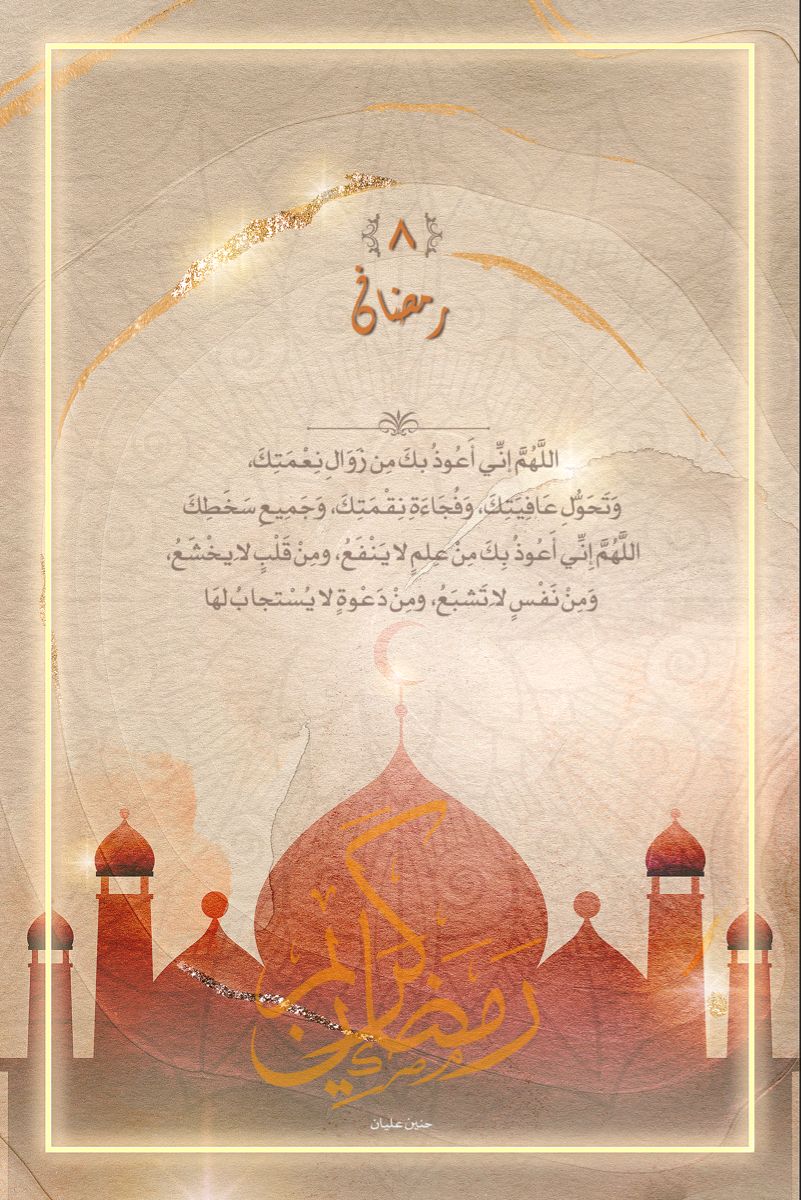 ٨
رمضان
اللَّهُمَّ إنِّي أَعُوذُ بكَ مِن زَوَالِ نِعْمَتِكَ،
وَتَحَوُّلِ عَافِيَتِكَ، وَفُجَاءَةِ نِقْمَتِكَ، وَجَمِيعِ سَخَطِكَ
اللَّهُمَّ إِنِّي أَعُوذُ بِكَ مِنْ عِلمٍ لا يَنْفَعُ، ومِنْ قَلْبٍ لا يخْشَعُ،
وَمِنْ نَفْسٍ لا تَشبَعُ، ومِنْ دَعْوةٍ لا يُسْتجابُ لهَا
رمضان كريم
حنين عليان